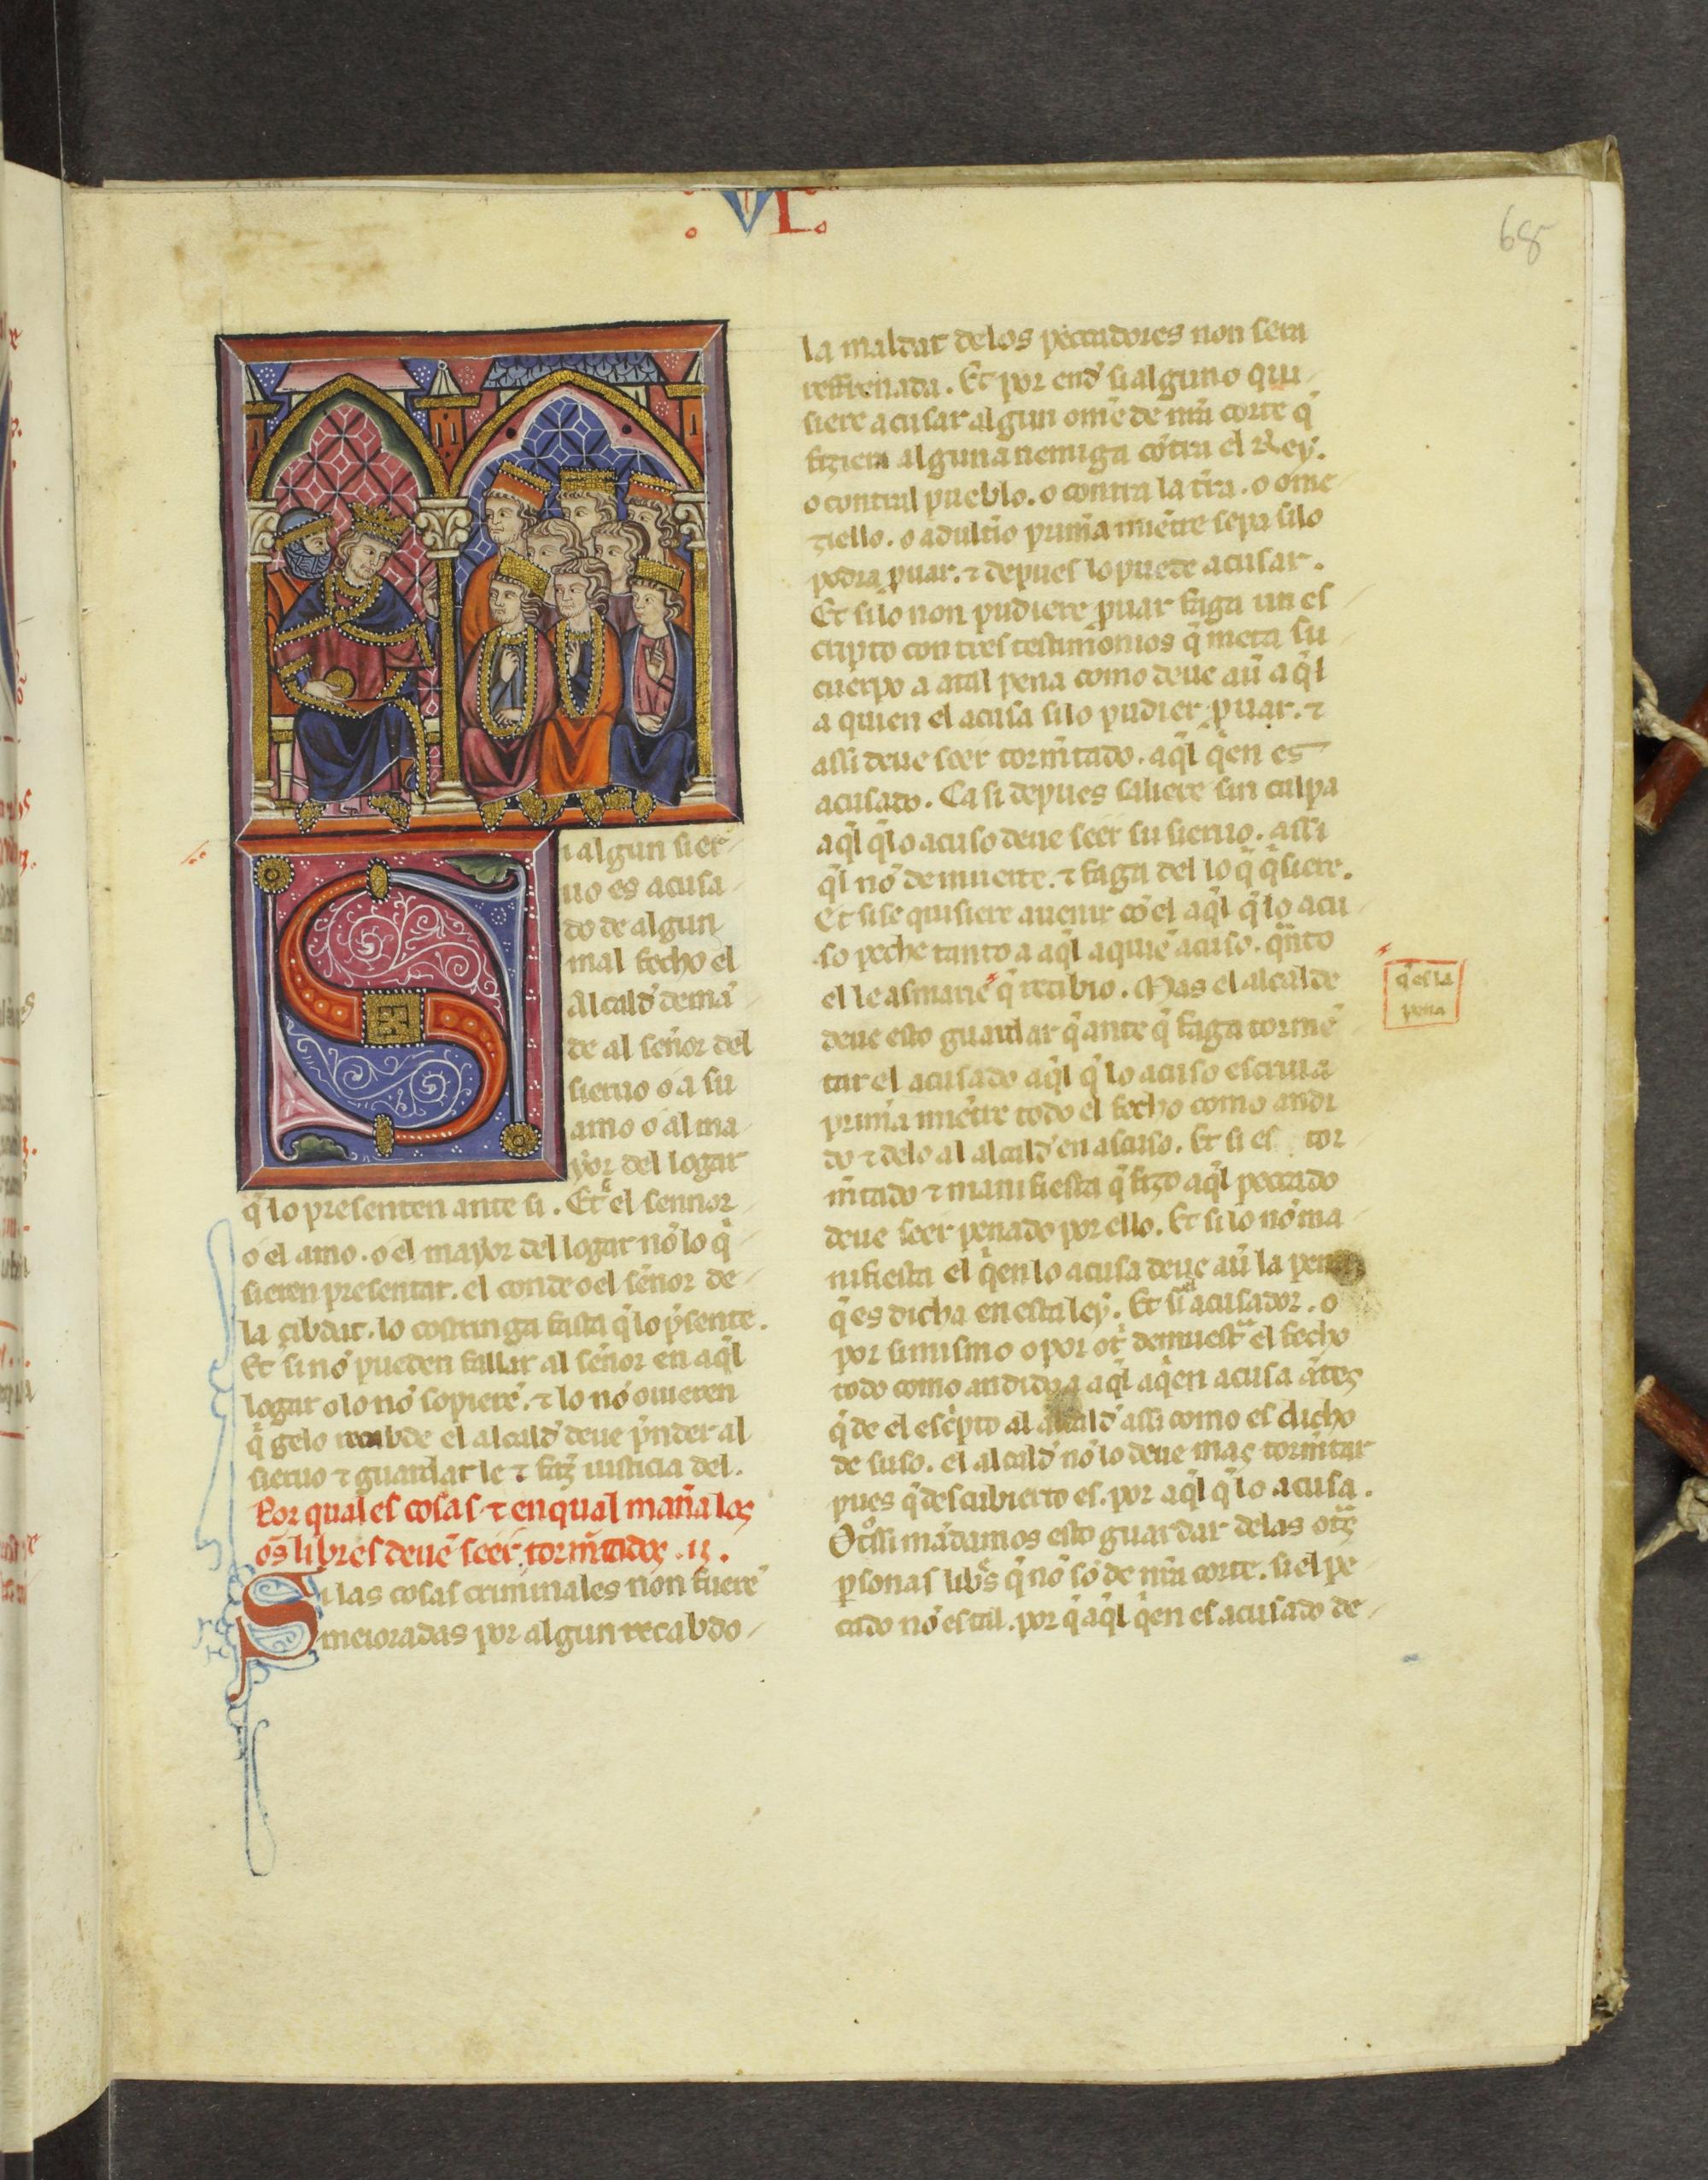 : VI :
68
Si algun sier-
uo es acusa-
do de algun
mal fecho el
Alcald' demã-
de al señor del
sieruo o a su
amo o al ma-
yor del logar
q̃ lo presenten ante si. Et el sennor
o el amo. o el mayor del logar nõ lo q̃-
sieren presentar. el conde o el señor de-
la çibdat. lo costringa fasta q̃ lo p̃sente.
Et si nõ pueden fallar al señor en aq̃l
logar o lo nõ sopierẽ. ⁊ lo nõ ouieren
q̃ gelo recabde el alcald' deue p̃nder al
sieruo ⁊ guardar le ⁊ faz̃ iusticia del.
Por quales cosas ⁊ en qual mañ̃a los
om̃s libres deuẽ seer torm̃tados .ij.
Si las cosas criminales non fuerẽ
meioradas por algun recabdo-
la maldat delos peccadores non sera
reffrenada. Et por end' si alguno qui-
siere acusar algun omẽ de nr̃a corte q̃
fiziera alguna nemiga cõtra el Rey.
o contral pueblo. o contra la tr̃ra. o ome-
ziello. o adult̃io prim̃a miẽtre sepa si lo
podra puar. ⁊ depues lo puede acusar.
Et si lo non pudiere puar faga un es-
cripto con tres testimonios q̃ meta su-
cuerpo a atal pena como deue aũ aq̃l
a quien el acusa si lo pudier puar. ⁊
assi deue seer torm̃tado. aq̃l q̃en es
acusado. Ca si depues saliere sin culpa
aq̃l q̃ lo acuso deue seer su sieruo. assi
q̃l nõ de muerte. ⁊ faga del lo q̃ q̃siere.
Et si se quisiere auenir cõ el aq̃l q̃ lo acu-
so peche tanto a aq̃l a quiẽ acuso. q̃nto
el le asmarie q̃ recibio. Mas el alcalde
q̃ es la
pena
deue esto guardar q̃ ante q̃ faga tormẽ-
tar el acusado aq̃l q̃ lo acuso escriua
prim̃a miẽtre todo el fecho como andi-
do ⁊ delo al alcald' en ascuso. Et si es tor-
m̃tado ⁊ manifiesta q̃ fizo aq̃l peccado
deue seer penado por ello. Et si lo nõ ma-
nifiesta el q̃en lo acusa deue aũ la pena
q̃ es dicha en esta ley. Et si el acusador. o
por si mismo o por otr̃ demuestr̃a el fecho
todo como andido a aq̃l a q̃en acusa ãtes
q̃ de el esc̃pto al alcald' assi como es dicho
de suso. el alcald' nõ lo deue mas torm̃tar
pues q̃ descubierto es. por aq̃l q̃ lo acusa.
Otrossi mãdamos esto guardar delas otr̃s
psonas libr̃s q̃ nõ sõ de nr̃a corte. si el pe-
cado nõ es tal. por q̃ aq̃l q̃en es acusado de-